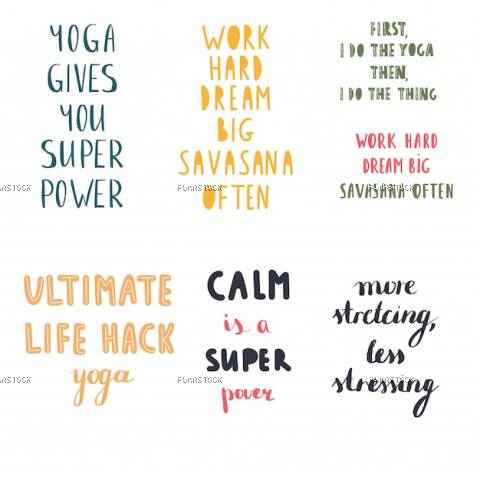 YOGA
GIVES
YOU
SUPER
POWER
WORK
HARD
DREAM
BIG
SAVASANA
OFTEN
FIRST,
I DO THE YOGA
THEN,
I DO THE THING
WORK HARD
DREAM BIG
SAVASANA OFTEN
ULTIMATE
LIFE HACK
yoga
CALM
is a
SUPER
power
more
stretcing,
less
stressing